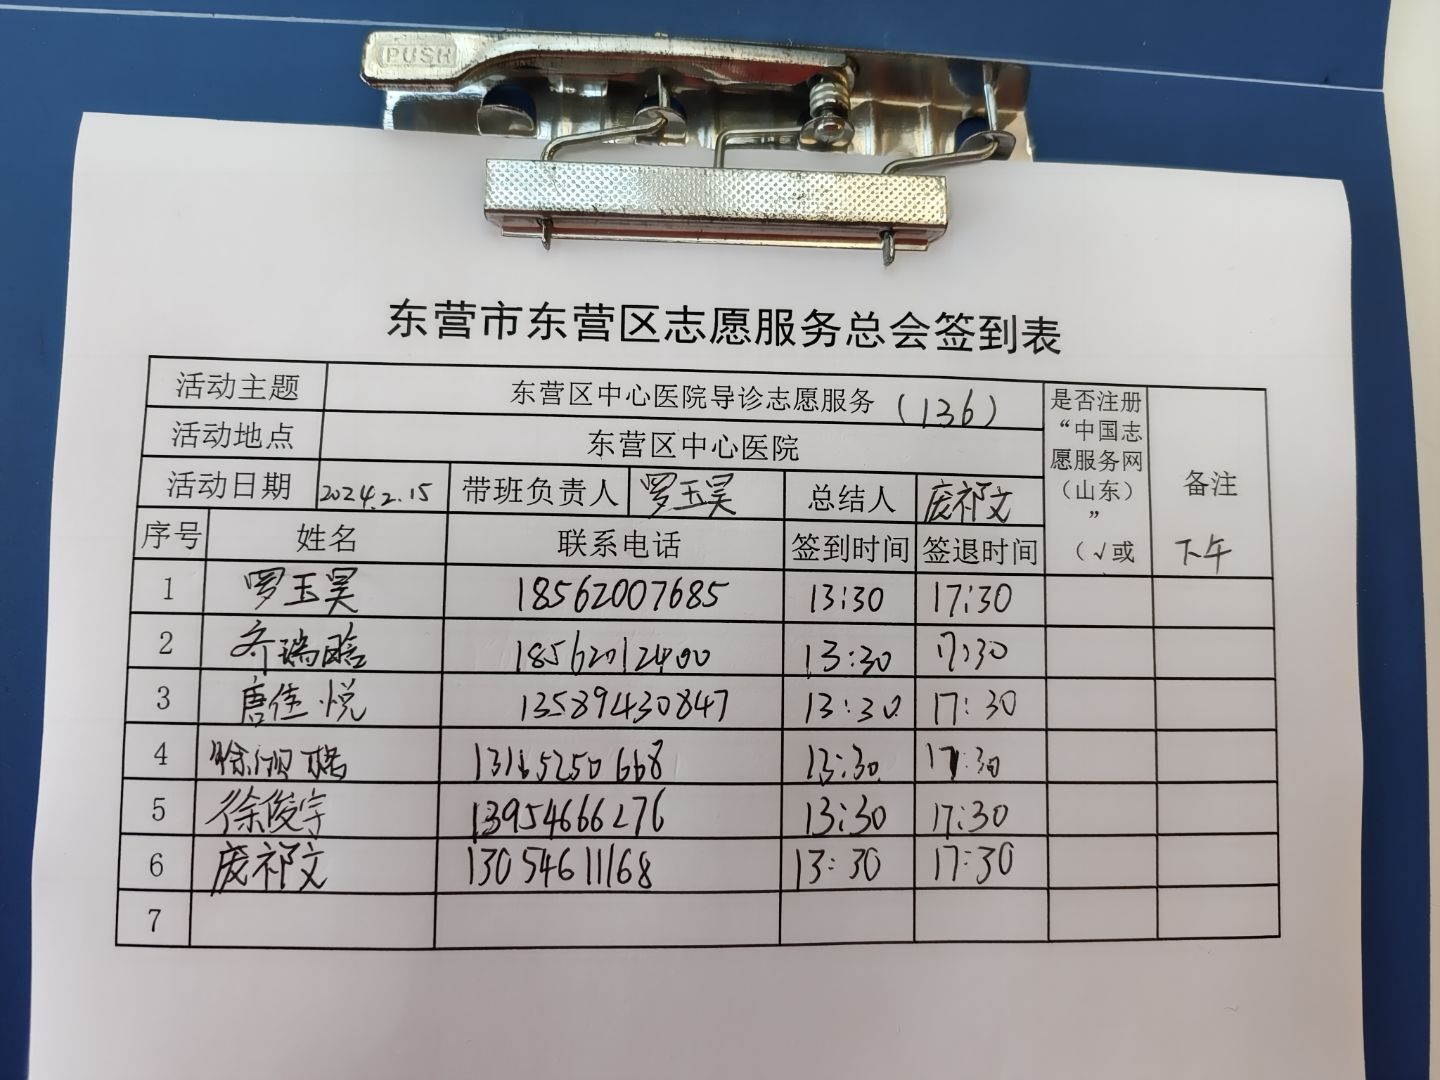 PUSH
东营市东营区志愿服务总会签到表
活动主题 东营区中心医院导诊志愿服务 (136) 是否注册“中国志愿服务网（山东）”（√或 备注
活动地点 东营区中心医院
活动日期 2024.2.15 带班负责人 罗玉昊 总结人 庞祁文
序号 姓名 联系电话 签到时间 签退时间 下午
1 罗玉昊 18562007685 13:30 17:30
2 齐瑞晗 18562012400 13:30 17:30
3 唐佳悦 13589430847 13:30 17:30
4 徐 13165250668 13:30 17:30
5 徐俊宇 13954666276 13:30 17:30
6 庞祁文 13054611168 13:30 17:30
7